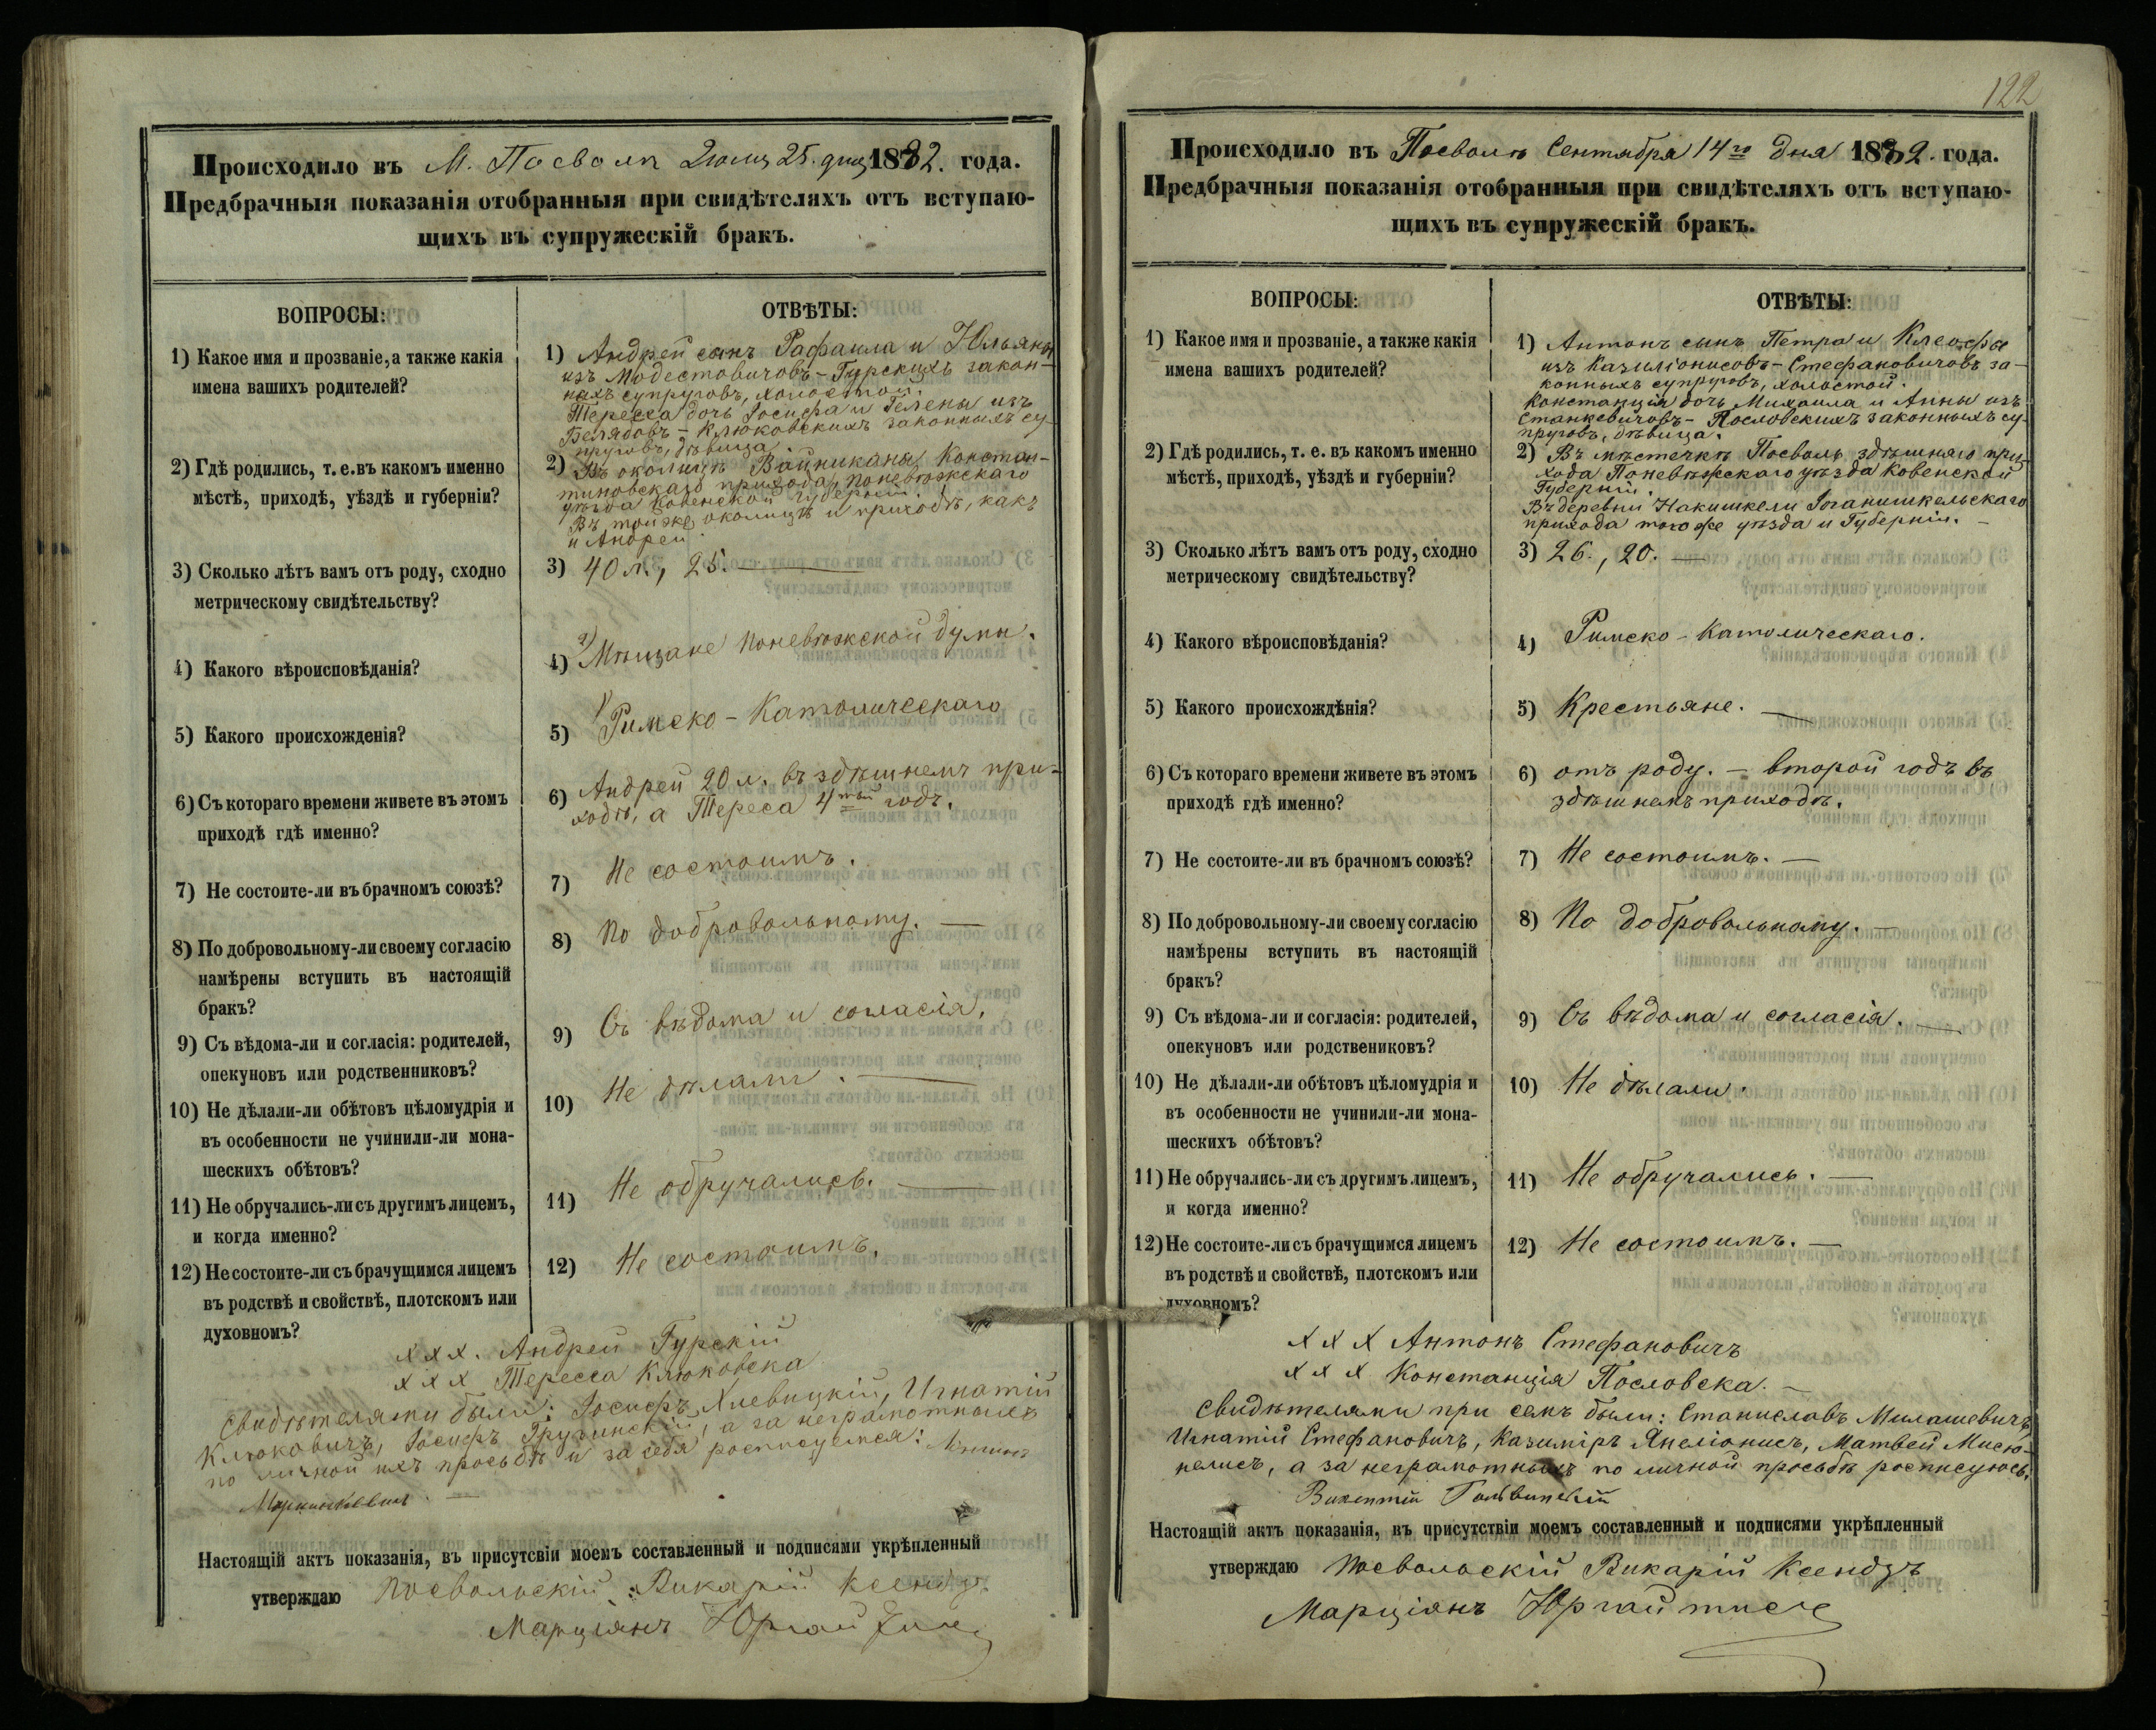 Происходило въ М. Посволи Іюля 25. дня 1882. года.
Предбрачныя показанія отобранныя при свидѣтеляхъ отъ вступаю-
щихъ въ супружескій бракъ.
ВОПРОСЫ:
ОТВѢТЫ:
1) Какое имя и прозваніе, а также какія
имена вашихъ родителей?
1) Андрей сынъ Рафаила и Юльяны
изъ Модестовичовъ - Гурскихъ закон-
ныхъ супруговъ, холостой.
Тересса дочь Іосифа и Гелены изъ
Белядовъ - Клюковскихъ законныхъ су-
пруговъ, дѣвица
2) Гдѣ родились, т. е. въ какомъ именно
мѣстѣ, приходѣ, уѣздѣ и губерніи?
2) Въ околицѣ Войниканы Констан-
тиновскаго прихода, Поневѣжскаго
уѣзда Ковенской Губерніи.
Въ той же околицѣ и приходѣ, какъ
и Андрей.
3) Сколько лѣтъ вамъ отъ роду, сходно
метрическому свидѣтельству?
3) 40 л., 25.
4) Какого вѣроисповѣданія?
4) 2) Мѣщане Поневѣжской думы.
5) Какого происхожденія?
5) 1) Римско - Католическаго
6) Съ котораго времени живете въ этомъ
приходѣ гдѣ именно?
6) Андрей 20 л. въ здѣшнемъ при-
ходѣ, а Тереса 4тый годъ.
7) Не состоите-ли въ брачномъ союзѣ?
7) Не состоимъ.
8) По добровольному-ли своему согласію
намѣрены вступить въ настоящій
бракъ?
8) По добровольному. —
9) Съ вѣдома-ли и согласія: родителей,
опекуновъ или родственниковъ?
9) Съ вѣдома и согласія.
10) Не дѣлали-ли обѣтовъ цѣломудрія и
въ особенности не учинили-ли мона-
шескихъ обѣтовъ?
10) Не дѣлали. —
11) Не обручались-ли съ другимъ лицемъ,
и когда именно?
11) Не обручались. —
12) Не состоите-ли съ брачущимся лицемъ
въ родствѣ и свойствѣ, плотскомъ или
духовномъ?
12) Не состоимъ.
ххх. Андрей Гурскій
ххх Тересса Клюковска
Свидѣтелями были: Іосифъ Хлевицкій, Игнатій
Клюковичъ, Іосифъ Гружинскій, а за неграмотныхъ
по личной ихъ просьбѣ и за себя росписуемся:
Настоящій актъ показанія, въ присутсвіи моемъ составленный и подписями укрѣпленный
утверждаю Посвольскій Викарій Ксендзъ
Марціянъ Юргайтис
122
Происходило въ Посволѣ Сентября 14го дня 1882. года.
Предбрачныя показанія отобранныя при свидѣтеляхъ отъ вступаю-
щихъ въ супружескій бракъ.
ВОПРОСЫ:
ОТВѢТЫ:
1) Какое имя и прозваніе, а также какія
имена вашихъ родителей?
1) Антонъ сынъ Петра и Клеофы
изъ Казиліонисовъ - Стефановичовъ за-
конныхъ супруговъ, холостой.
Констанція дочь Михаила и Анны изъ
Станкевичовъ - Пословскихъ законныхъ су-
пруговъ, дѣвица.
2) Гдѣ родились, т. е. въ какомъ именно
мѣстѣ, приходѣ, уѣздѣ и губерніи?
2) Въ мѣстечкѣ Посволь здѣшняго при-
хода Поневѣжскаго уѣзда Ковенской
Губерніи.
Въ деревни Накишкели Іоганишкельскаго
прихода того же уѣзда и Губерніи. —
3) Сколько лѣтъ вамъ отъ роду, сходно
метрическому свидѣтельству?
3) 26., 20. —
4) Какого вѣроисповѣданія?
4) Римско - Католическаго.
5) Какого происхождѣнія?
5) Крестьяне. —
6) Съ котораго времени живете въ этомъ
приходѣ гдѣ именно?
6) отъ роду. — второй годъ въ
здѣшнемъ приходѣ.
7) Не состоите-ли въ брачномъ союзѣ?
7) Не состоимъ. —
8) По добровольному-ли своему согласію
намѣрены вступить въ настоящій
бракъ?
8) По добровольному. —
9) Съ вѣдома-ли и согласія: родителей,
опекуновъ или родствениковъ?
9) Съ вѣдома и согласія. —
10) Не дѣлали-ли обѣтовъ цѣломудрія и
въ особенности не учинили-ли мона-
шескихъ обѣтовъ?
10) Не дѣлали.
11) Не обручались-ли съ другимъ лицемъ,
и когда именно?
11) Не обручались. —
12) Не состоите-ли съ брачущимся лицемъ
въ родствѣ и свойствѣ, плотскомъ или
духовномъ?
12) Не состоимъ. —
ххх Антонъ Стефановичъ
ххх Констанція Пословска. —
Свидѣтелями при семъ были: Станиславъ Милашевичъ,
Игнатій Стефановичъ, Казиміръ Янеліонисъ, Матвей Мисю-
нелисъ, а за неграмотныхъ по личной просьбѣ росписуюсь.
Викентій
Настоящій актъ показанія, въ присутствіи моемъ составленный и подписями укрѣпленный
утверждаю Посвольскій Викарій Ксендзъ
Марціянъ Юргайтис